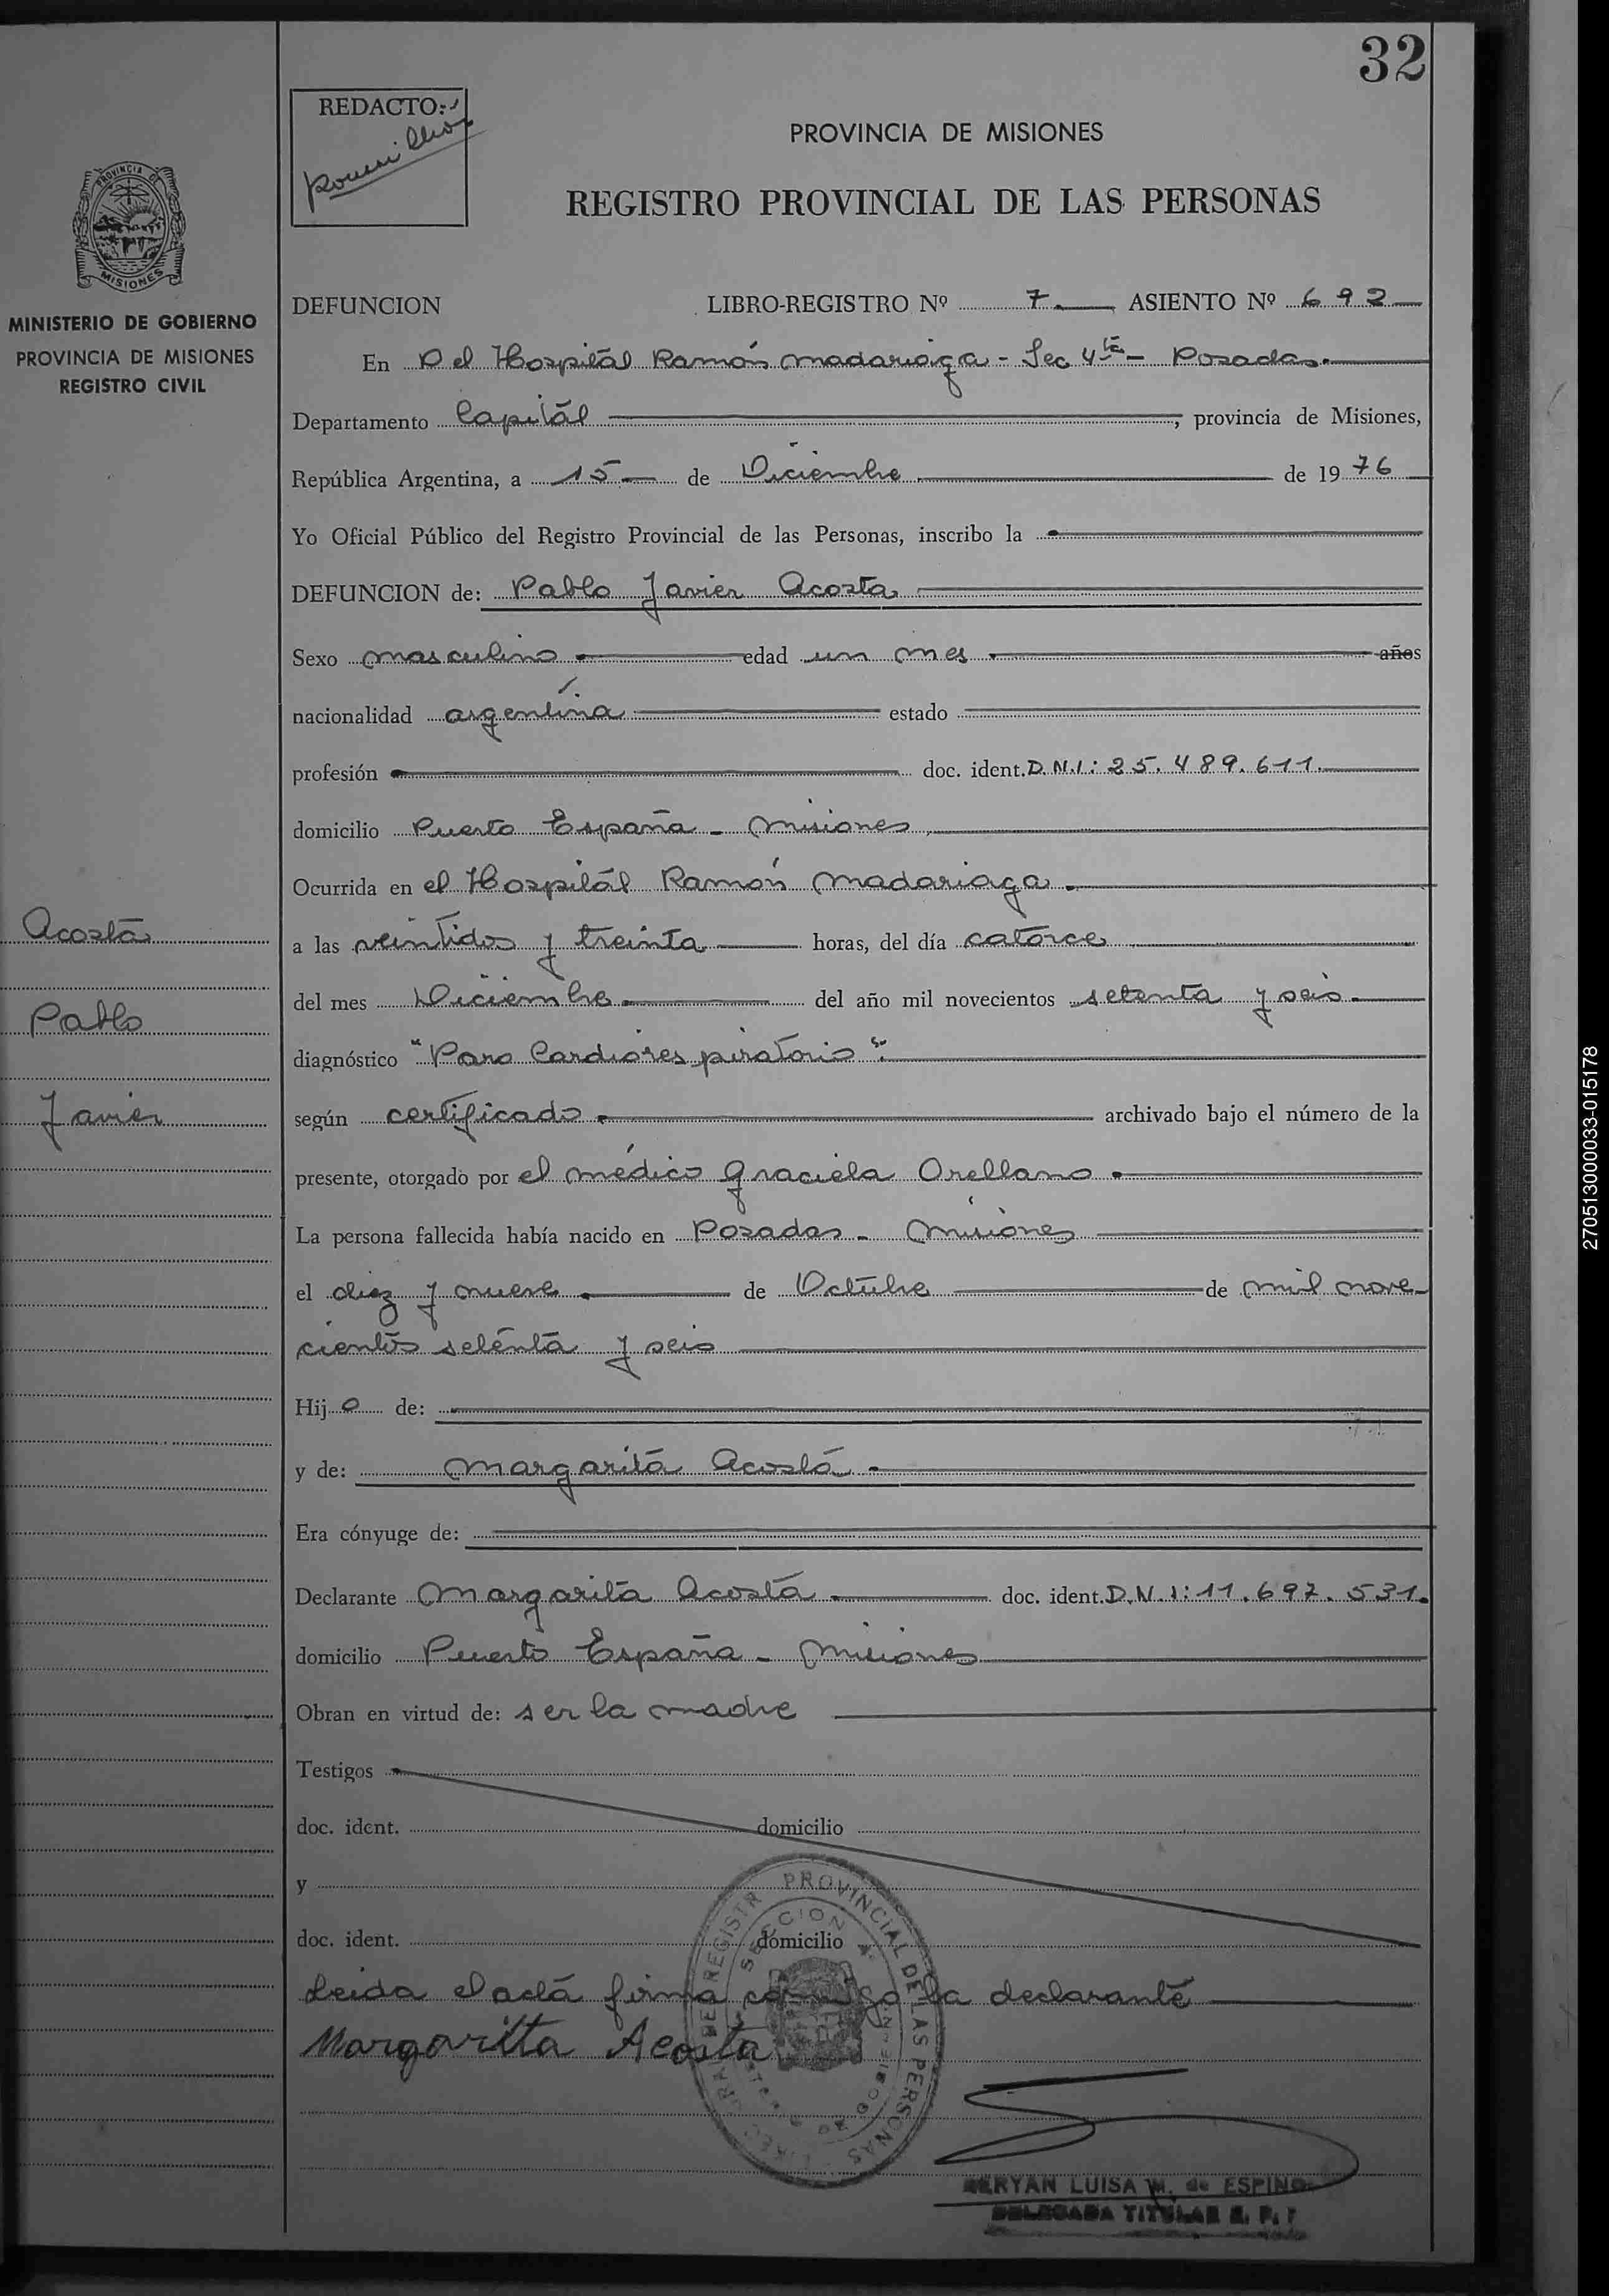 32
REDACTO:
PROVINCIA DE MISIONES
REGISTRO PROVINCIAL DE LAS PERSONAS
PROVINCIA DE
MISIONES
MINISTERIO DE GOBIERNO
PROVINCIA DE MISIONES
REGISTRO CIVIL
DEFUNCION LIBRO-REGISTRO Nº 7 ASIENTO Nº 692
En el Hospital Ramón Madariaga - Sec 4ta - Posadas.
Departamento Capital, provincia de Misiones,
República Argentina, a 15 de Diciembre de 1976
Yo Oficial Público del Registro Provincial de las Personas, inscribo la
DEFUNCION de: Pablo Javier Acosta
Sexo masculino edad un mes años
nacionalidad argentina estado
profesión doc. ident. D.N.I: 25.489.611.
domicilio Puerto España - Misiones
Ocurrida en el Hospital Ramón Madariaga.
a las veintidos y treinta horas, del día catorce
del mes Diciembre del año mil novecientos setenta y seis
diagnóstico "Paro Cardiorespiratorio".
según certificado archivado bajo el número de la
presente, otorgado por el médico Graciela Orellano
La persona fallecida había nacido en Posadas - Misiones
el diez y nueve de Octubre de mil nove-
cientos setenta y seis
Hijo de:
y de: Margarita Acosta
Era cónyuge de:
Declarante Margarita Acosta doc. ident. D.N.I: 11.697.531.
domicilio Puerto España - Misiones
Obran en virtud de: ser la madre
Testigos
doc. ident. domicilio
y
doc. ident. domicilio
Leida el acta firma conmigo la declarante
Margarita Acosta
PROVINCIAL DE LAS PERSONAS
SECCION
LUISA M. de ESPINO
DELEGADA TITULAR
Acosta
Pablo
Javier
270513000033-015178